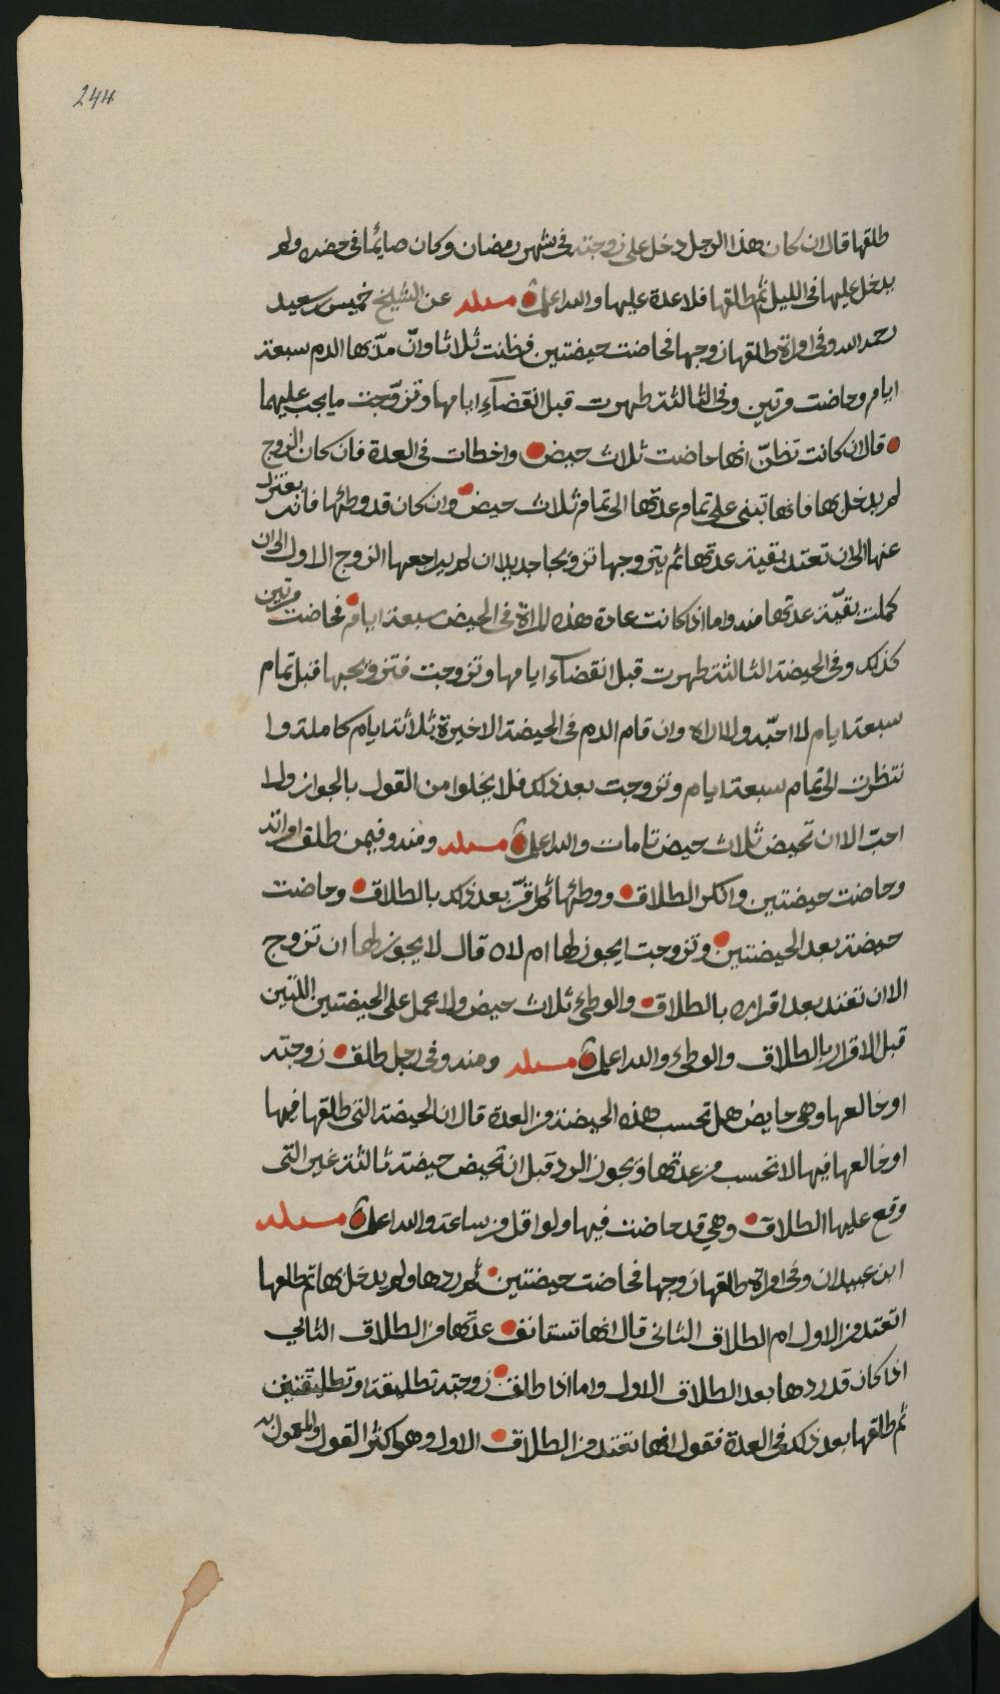 244
طلقها قال ان كان هذا الرجل دخل على زوجته فى شهر رمضان وكان صايما فى حضره ولم
يدخل عليها فى الليل ثم طلقها فلا عدة عليها والله اعلم مسئلة عن الشيخ خميس بن سعيد
رحمه الله وفى امراة طلقها زوجها فحاضت حيضتين فظنت ثلاثا وانّ مدّ بها الدم سبعة
ايام وحاضت مرتين وفى الثالثة طهرت قبل انقضآء ايامها وتزوّجت ما يجب عليهما
قال ان كانت تظنّ انها حاضت ثلاث حيض واخطات فى العدة فان كان الزوج
لم يدخل بها فانها تبنى على تمام عدتها الى تمام ثلاث حيض وان كان قد وطئها فانه يعتزل
عنها الى ان تعتد بقية عدتها ثم يتزوجها تزويجا جديدا ان لم يراجعها الزوج الاول الى ان
كملت بقيّة عدتها منه واما اذا كانت عادة هذه المراة فى الحيض سبعة ايام فحاضت مرتين
كذلك وفى الحيضة الثالثة طهرت قبل انقضآء ايامها وتزوجت فتزويجها قبل تمام
سبعة ايام لا احبّه ولا اراه وان قام الدم فى الحيضة الاخيرة ثلاثة ايام كاملة وا
نتظرت الى تمام سبعة ايام وتزوجت بعد ذلك فلا يخلوا من القول بالجواز ولا
احبّ الا ان تحيض ثلاث حيض تامات والله اعلم مسئلة ومنه وفيمن طلق امراته
وحاضت حيضتين وانكر الطلاق ووطئها ثم اقرّ بعد ذلك بالطلاق وحاضت
حيضة بعد الحيضتين وتزوجت ايجوز لها ام لا قال لا يجوز لها ان تزوج
الا ان تعتد بعد اقراره بالطلاق والوطئ ثلاث حيض ولا يحمل على الحيضتين اللتين
قبل الاقرار بالطلاق والوطء والله اعلم مسئلة ومنه وفى رجل طلق زوجته
او خالعها وهى حايض هل تحسب هذه الحيضة من العدة قال ان الحيضة التى طلقها فيها
او خالعها فيها لا تحسب من عدتها ويجوز الرد قبل ان تحيض حيضة ثالثة غير التى
وقع عليها الطلاق وهي قد حاضت فيها ولو اقل من ساعة والله اعلم مسئلة
ابن عبيدان وفى امراة طلقها زوجها فحاضت حيضتين ثم ردها ولم يدخل بها ثم طلقها
اتعتد من الاول ام الطلاق الثانى قال انها تستانف عدتها من الطلاق الثاني
اذا كان قد ردها بعد الطلاق الاول واما اذا طلق زوجته تطليقة او تطليقتين
ثم طلقها بعد ذلك فى العدة فقول انها تعتد من الطلاق الاول وهو اكثر القول والمعمول به